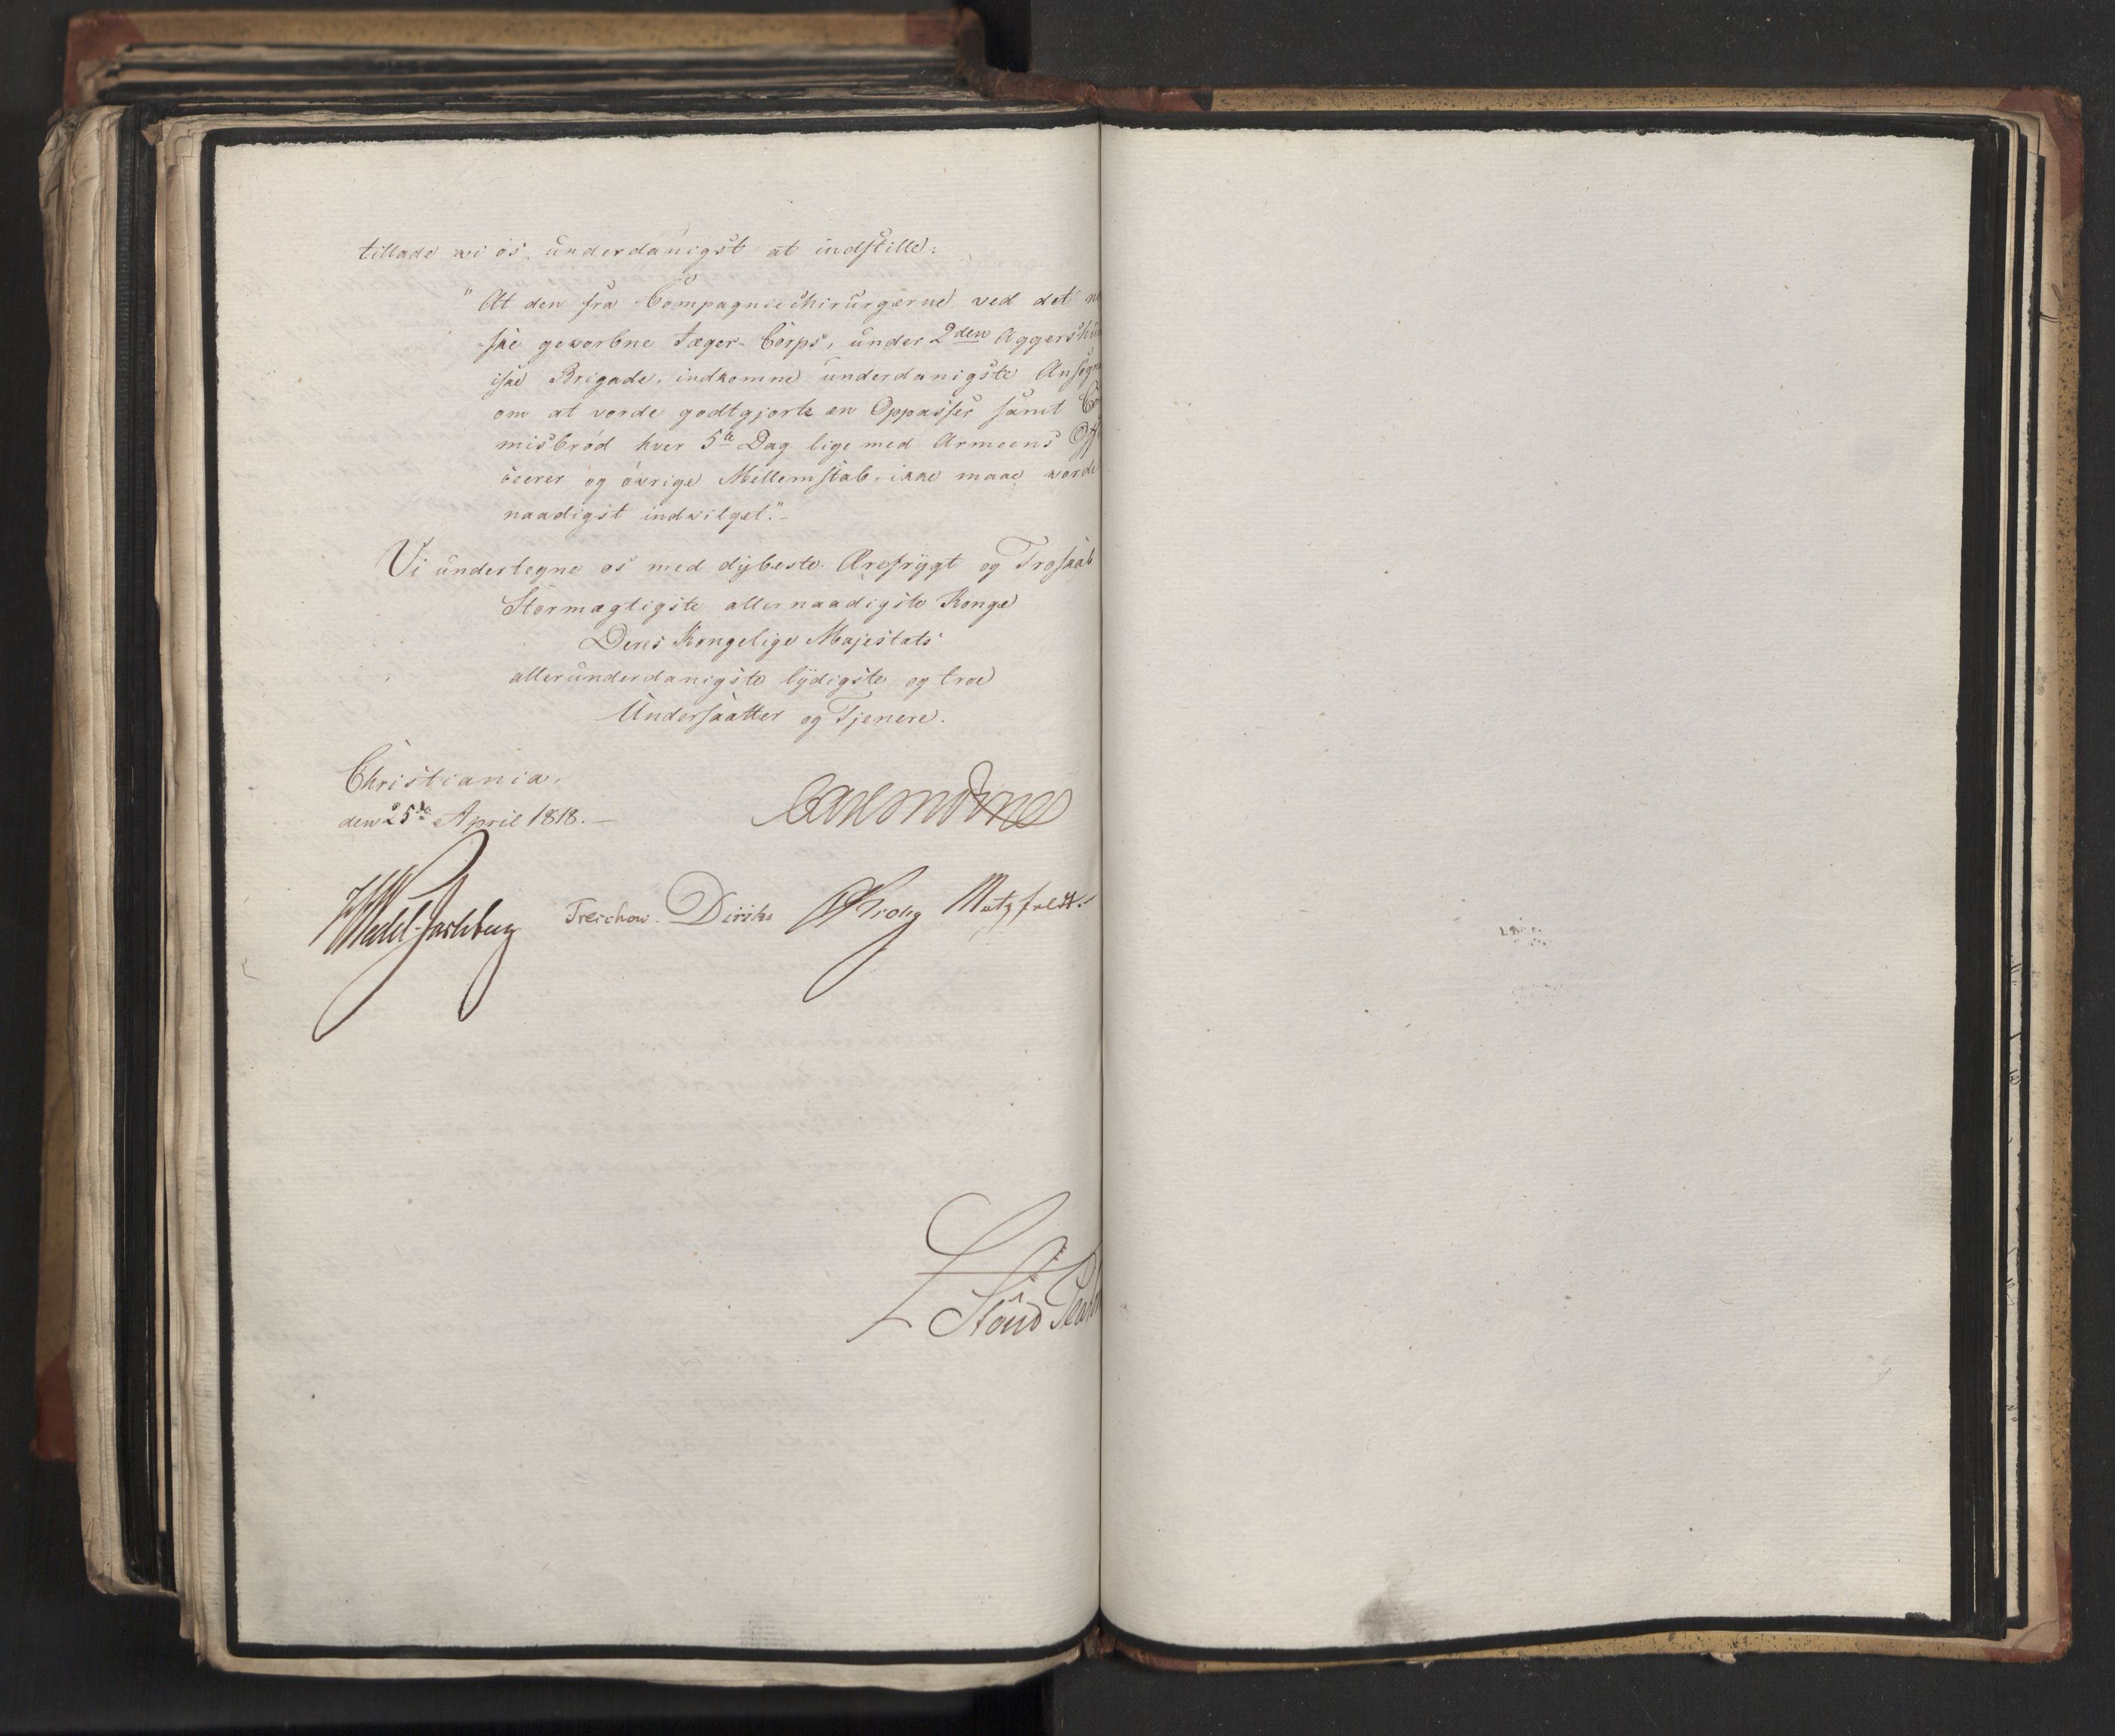 tillade vi os underdanigst at indstille:
"At den fra Compagniechirurgerne ved det
ske geworbne Jæger-Corps, under 2den Aggershu
iske Brigade, indkomne underdanigste Ansøgn
om at vorde godtgjorte en Oppasser samt Co
misbrød hver 5te Dag lige med Armeens Offi
ceerer og øvrige Mellemstab, ikke maae vorde
naadigst indvilget."
Vi undertegne os med dybeste Ærefrygt og Troskab
Stormægtigste allernaadigste Konge
Deres Kongelige Majestæts
allerunderdanigste lydigste og troe
Undersaatter og Tjenere.
Christiania,
den 25de April 1818.
Carl Mörner
Wedel-Jarlsberg Treschow. Diriks Krohg Motzfeldt.